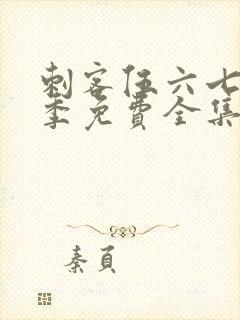 刺客伍六七
季免費全集
秦頁